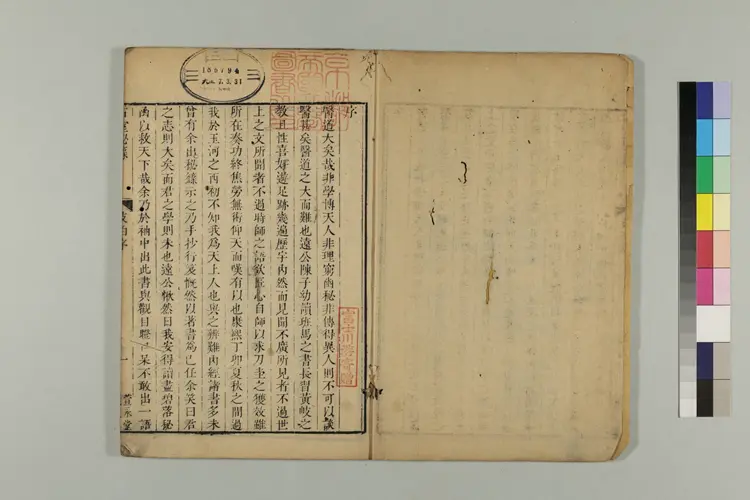 序
醫道大矣哉非學博天人非理窮幽秘非傳得異人則不可以談
醫甚矣醫道之大而難也遠公陳子幼讀班馬之書長習黃岐之
教且性喜好遊足跡幾遍歷宇內然而見聞不廣所見者不過世
上之文所聞者不過時師之語欲臣心自師以求刀圭之獲效雖
所在奏功終焦勞無術仰天而嘆有以也康熙丁卯夏秋之間過
我於玉河之西初不知我為天上人也與之辨難內經諸書多未
曾有余出秘錄示之乃手抄行笈慨然以著書為己任余笑曰君
之志則大矣而君之學則未也遠公愀然曰我安得讀盡碧落秘
函以救天下哉余乃於袖中出此書與觀目瞪口呆不敢出一語
石室秘錄
岐伯序
一
萱永堂
155794
7.3.31